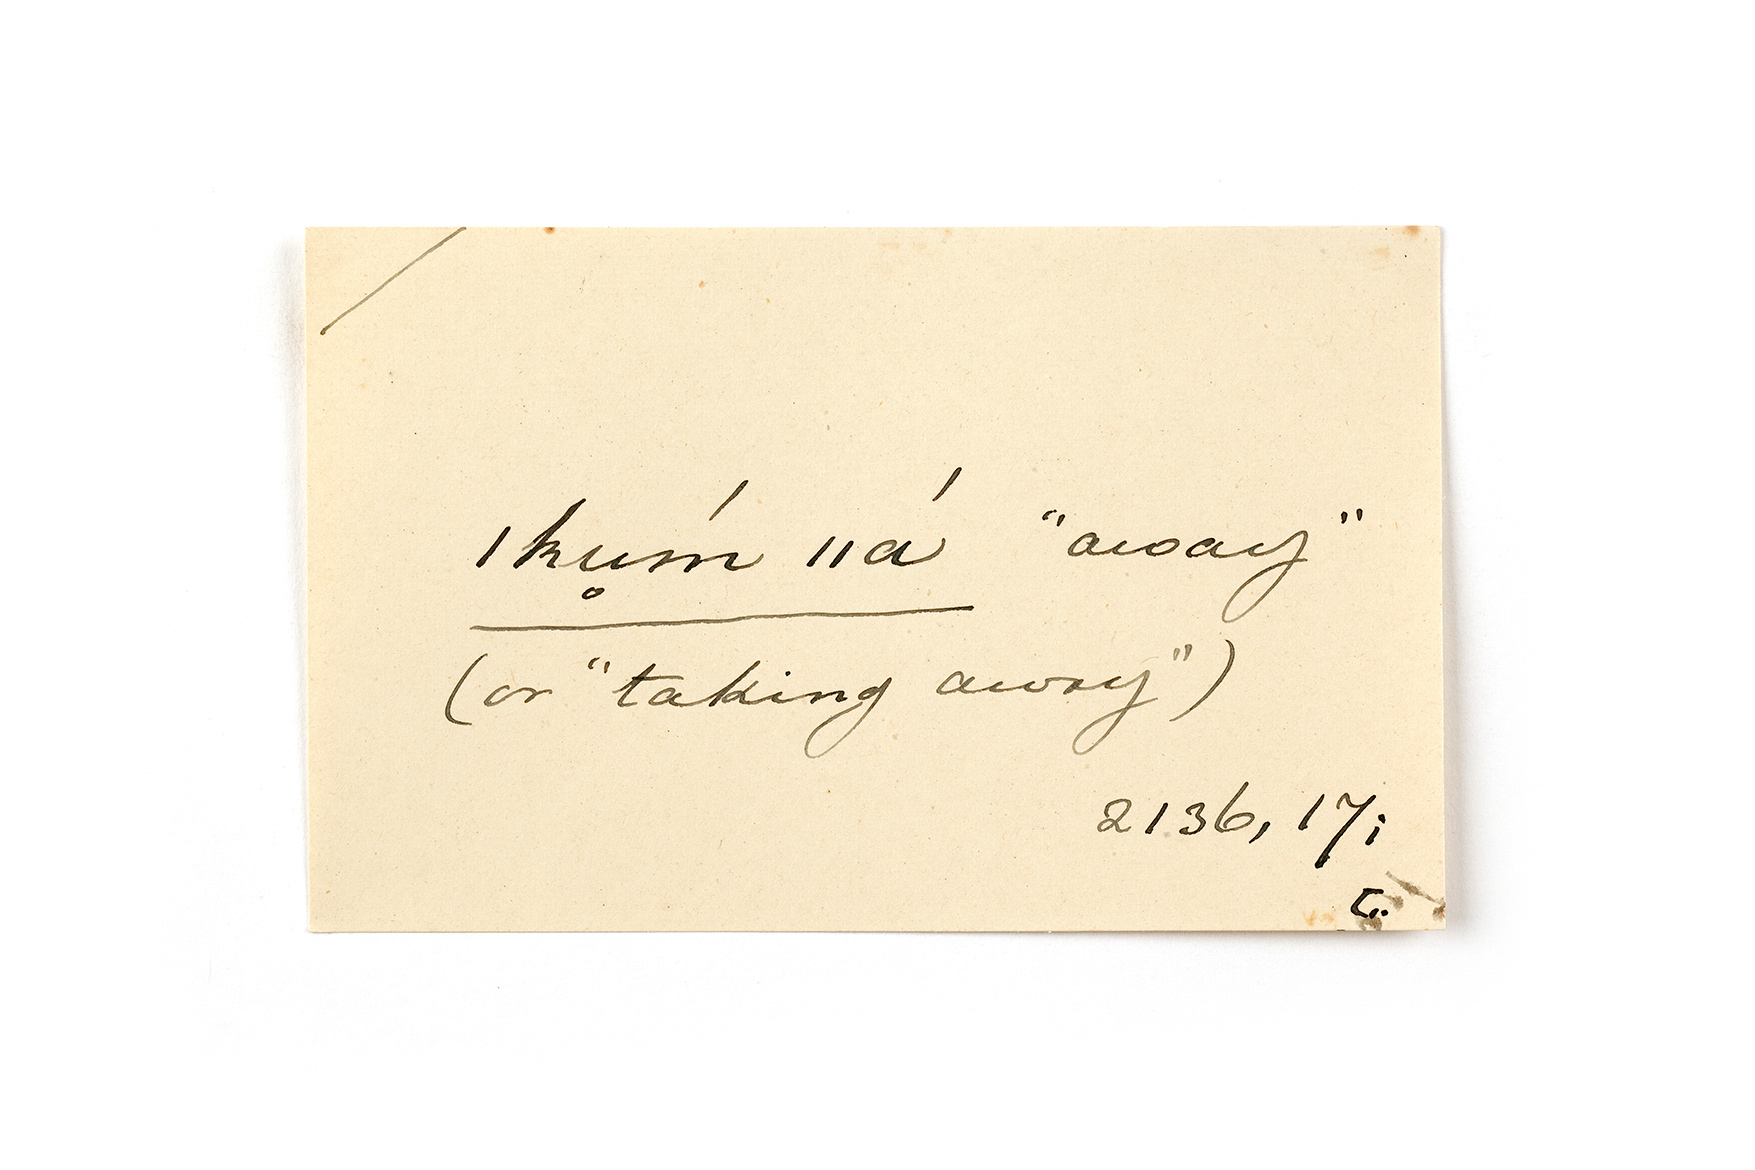 ǀkụ̊ḿ ǁá "away"
(or "taking away")
2136, 17;
C.